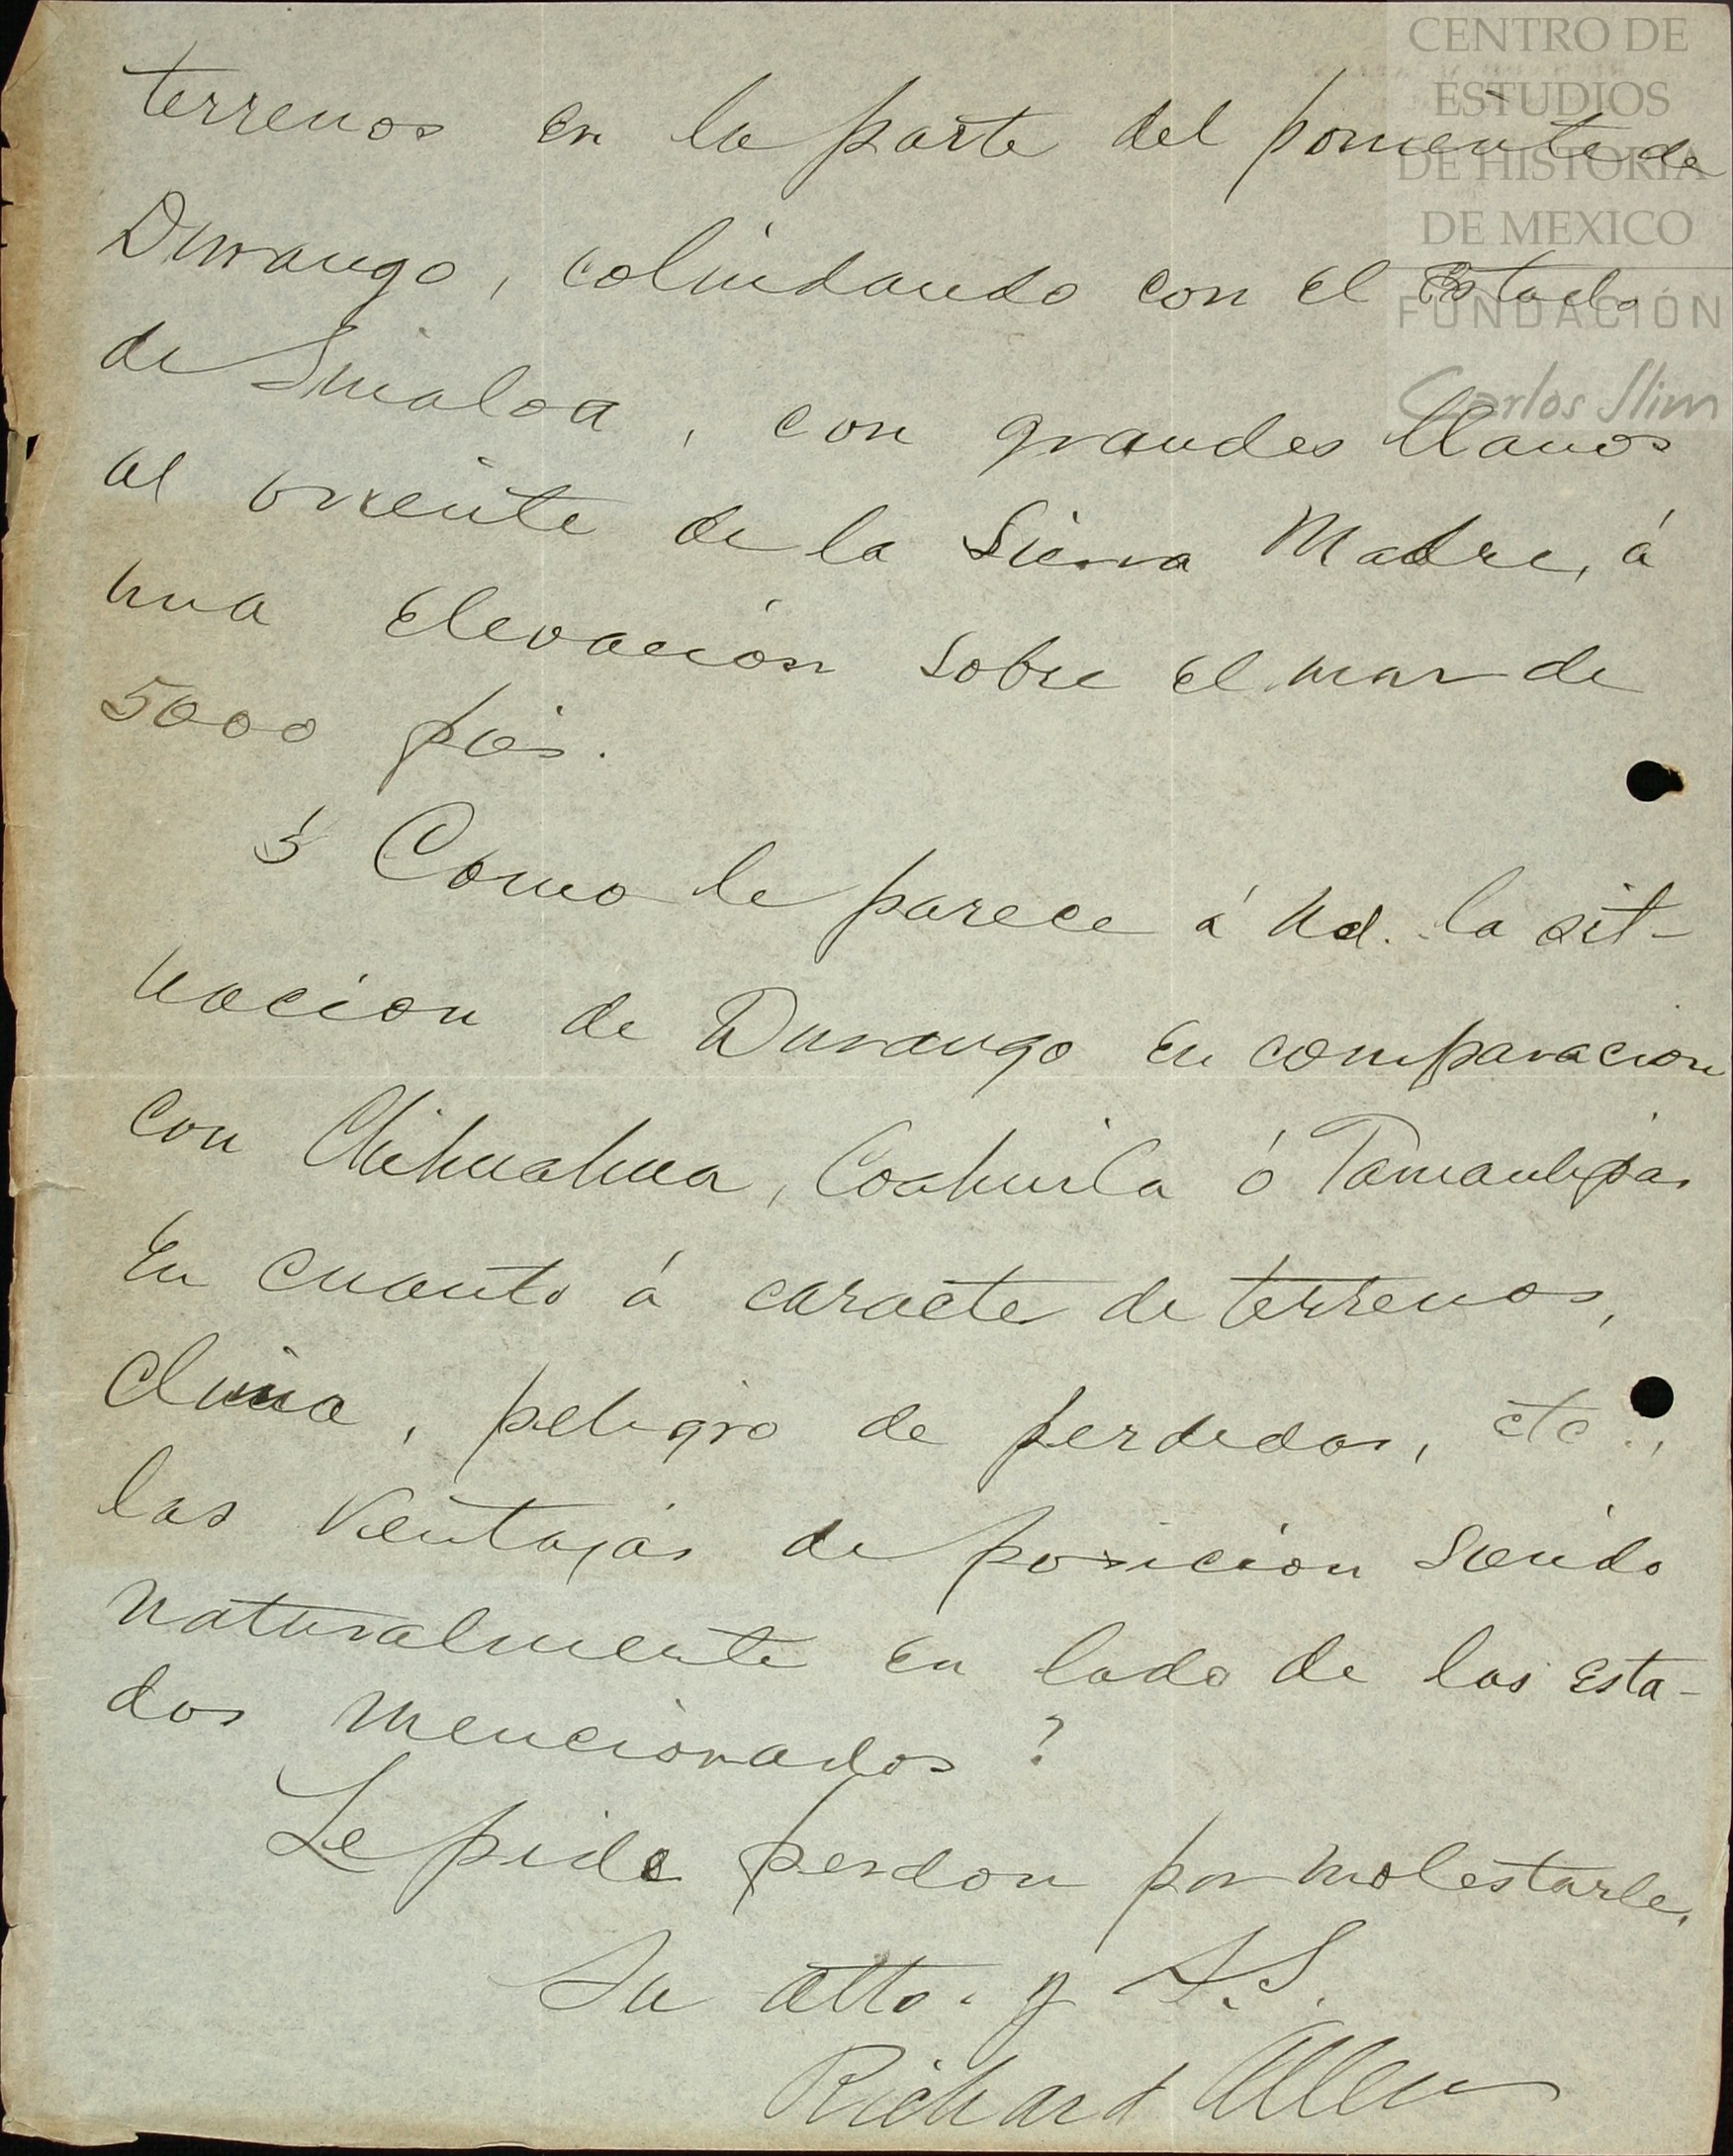 CENTRO DE
ESTUDIOS
DE HISTORIA
DE MEXICO
FUNDACIÓN
Carlos Slim
terrenos en la parte del poniente de
Durango, colindando con el Estado
de Sinaloa, con grandes llanos
al oriente de la Sierra Madre, á
una elevación sobre el mar de
5000 piés.
¿ Como le parece á Ud. la sit-
uacion de Durango en comparacion
con Chihuahua, Coahuila ó Tamaulipas
en cuanto á caracter de terrenos,
clima, peligro de perdidas, etc.,
las ventajas de posicion siendo
naturalmente en lado de los esta-
dos mencionados ?
Le pide perdon por molestarle,
Su atto. y S.S.
Richard Allen